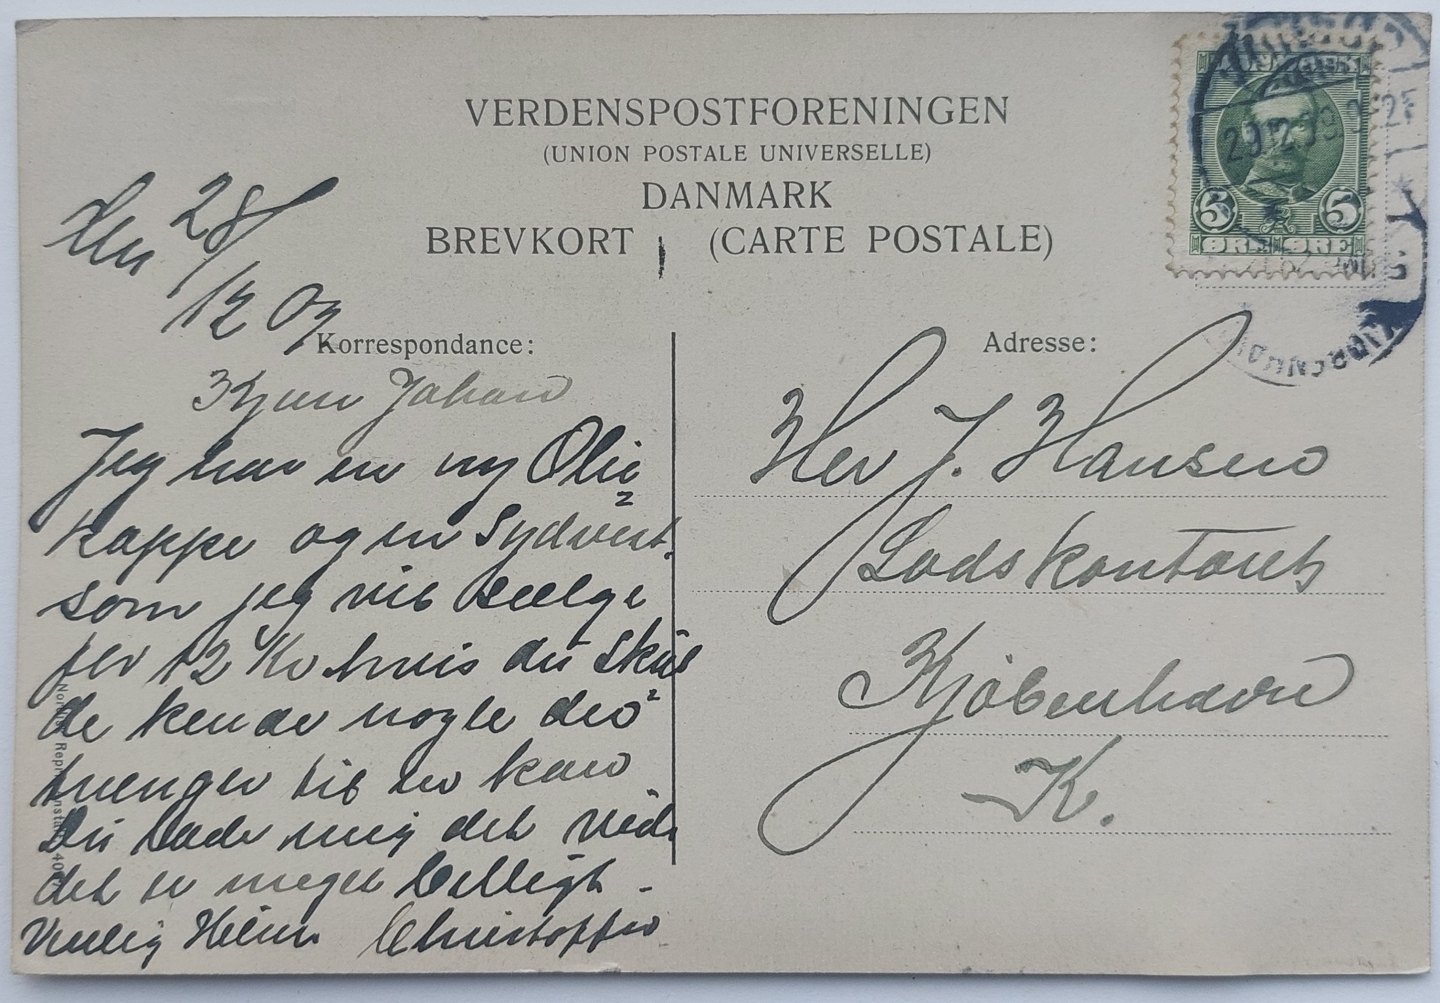 VERDENSPOSTFORENINGEN
(UNION POSTALE UNIVERSELLE)
DANMARK
BREVKORT (CARTE POSTALE)
5 5
ØRE ØRE
29.12.09
Den 28/12 09
Korrespondance:
Kjære Johan
Jeg har en ny Olie
kappe og en Sydvest
som jeg vil sælge
for 12 Kr hvis du Skul
de kende nogle der
trænger til en kan
Du lade mig det vide
det er meget billigt -
Venlig Hilsen Christoffer
Adresse:
Her J. Hansen
Lodskontoret
Kjöbenhavn
K.